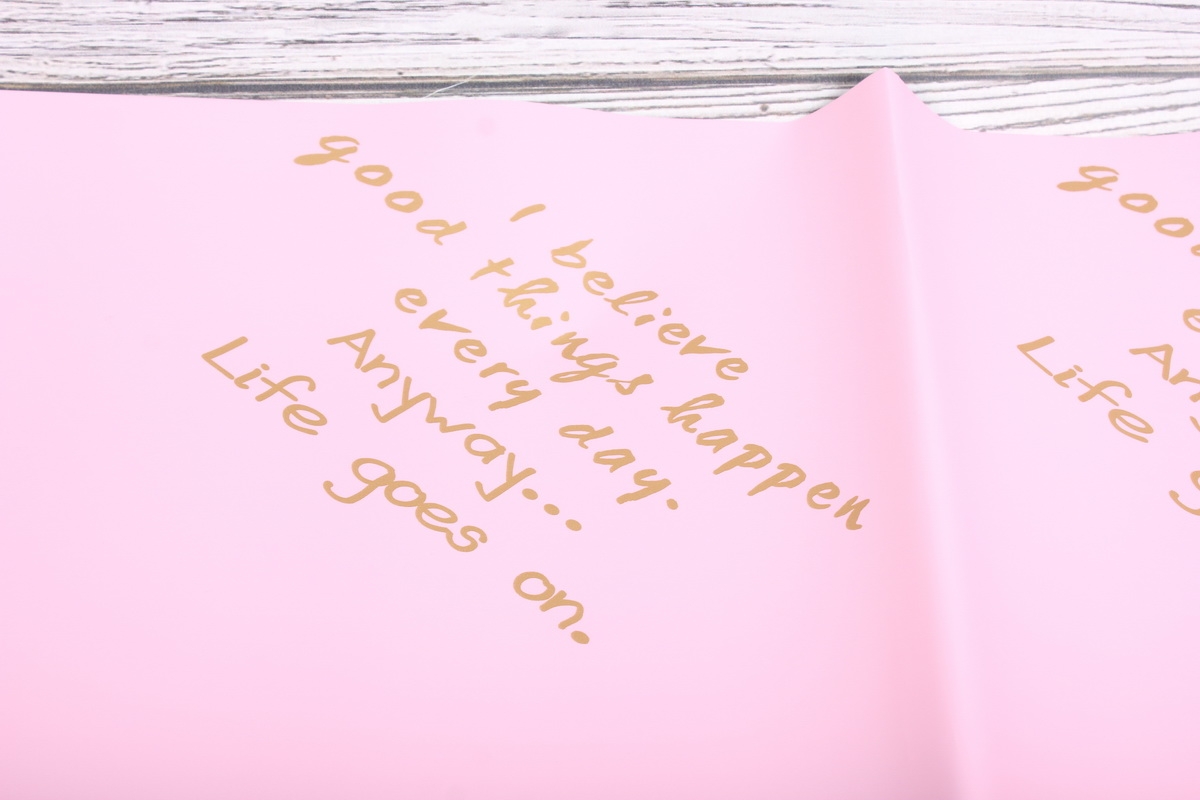 I believe
good things happen
every day.
Anyway...
Life goes on.
goo
Life